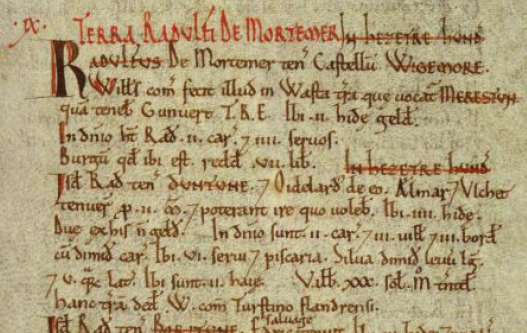 .IX. TERRA RADULFI DE MORTEMER. IN HEZETRE HUND
RADULFUS De Mortemer ten̄ Castellū WIGEMORE.
Wills̄ com̄ fecit illud in Wasta tra que uocat̄ MERESTUN
quā teneb̄ Gunuert T.R.E. Ibi .ii. hidę geld̄.
In dn̄io ht̄ Rad̄ .ii. car̄. 7 iiii. seruos.
Burgū qd̄ ibi est. redd̄ .vii. lib̄. IN HEZETRE HUND
Isd̄ Rad̄ ten̄ DUNTUNE. 7 Oidelard̄ de eo. Almar 7 Ulchet
tenuer̄ p .ii. M̄. 7 poterant ire quo uoleb̄. Ibi .iiii. hide.
Due ex his n̄ geld̄. In dn̄io sunt .ii. car̄. 7 .iiii. uilłi 7 .iii. bord̄
cū dimid̄ car̄. Ibi .vi. serui 7 piscaria. Silua dimid̄ leuū lḡ.
7 .v. qr̄ lat̄. Ibi sunt .ii. haie. Valb̄ .xxx. sol̄. M̊ tn̄td̄.
hanc trā ded̄ W. com̄ Turstino flandrensi.
saluage
Isd̄ Rad̄ ten̄